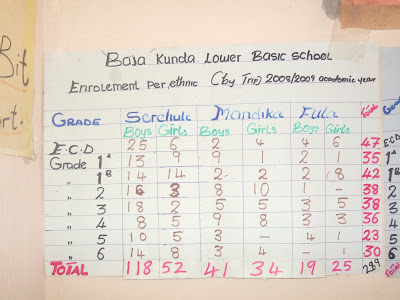 Bit
rt.
Basa Kunda Lower Basic school
Enrolement Per, ethnic (by Tribe) 2008/2009 academic year
GRADE Serehule Mandika Fula Total
Boys Girls Boys Girls Boys Girls
E.C.D 25 6 2 4 4 6 47 E.C.D
Grade 1A 13 9 9 1 2 1 35 1A
" 1B 14 14 2 2 2 8 42 1B
" 2 16 3 8 10 1 - 38 2
" 3 18 2 5 5 3 5 38 3
" 4 8 5 9 8 3 3 36 4
" 5 10 5 3 - 4 1 23 5
" 6 14 8 3 4 - 1 30 6
TOTAL 118 52 41 34 19 25 289 Total